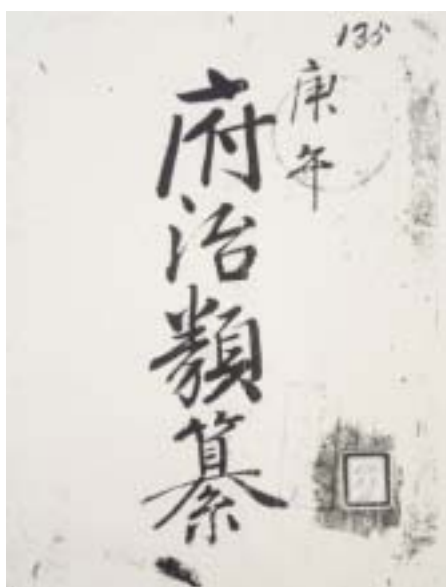 135
庚年
府治類纂